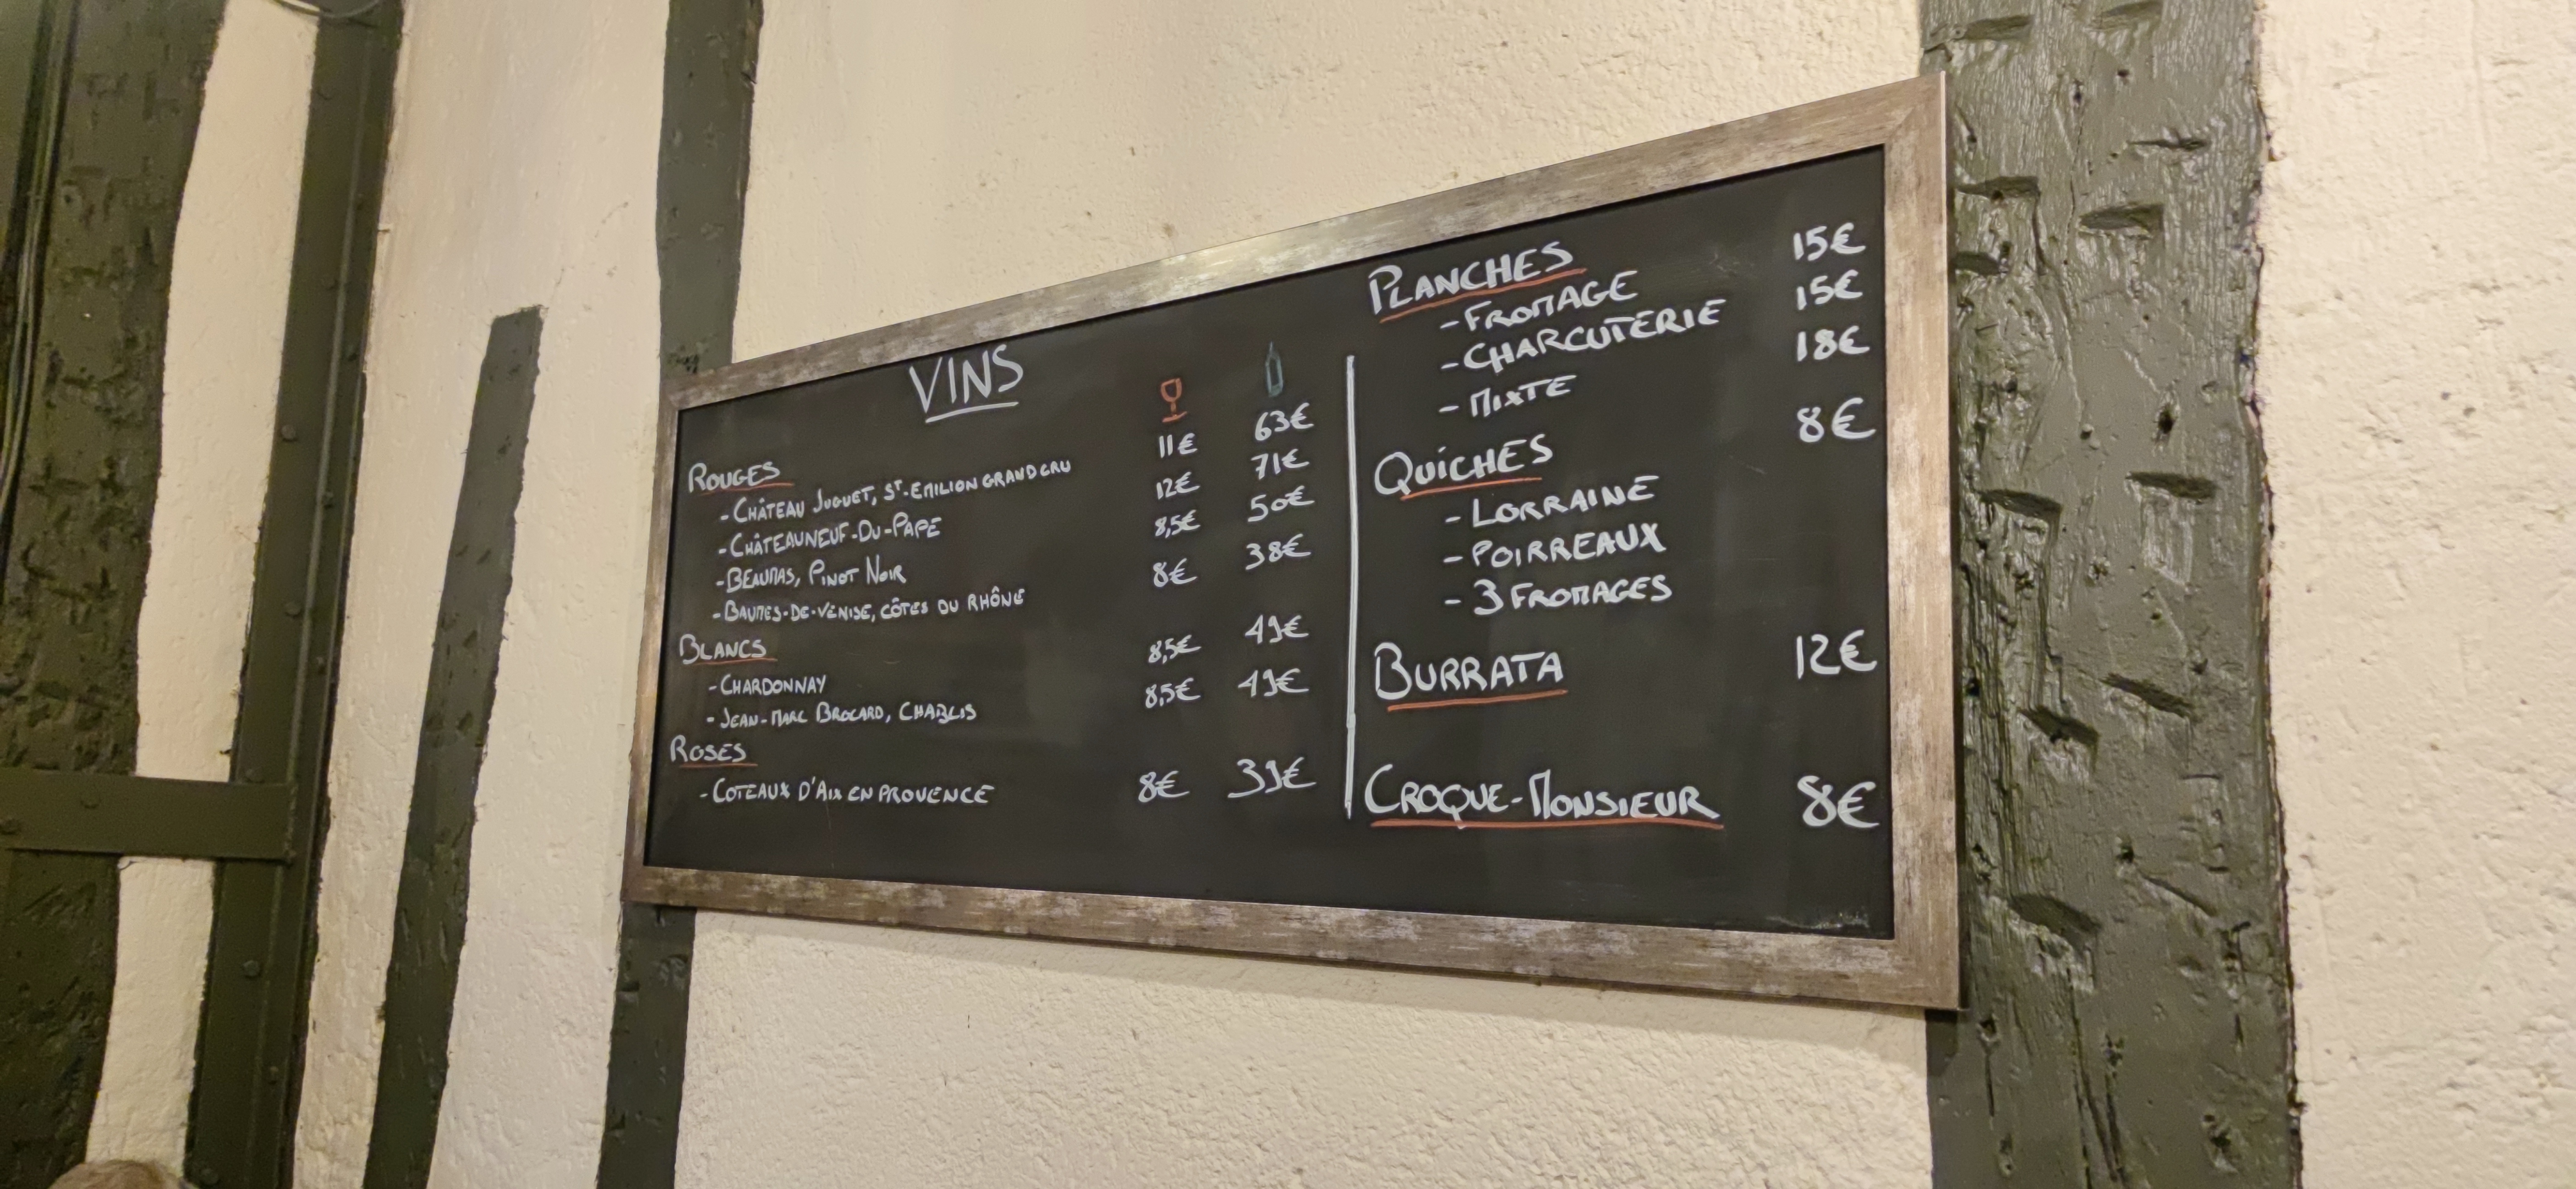 VINS
ROUGES
- CHÂTEAU JUGUET, ST-EMILION GRAND CRU 11€ 63€
- CHÂTEAUNEUF-DU-PAPE 12€ 71€
- BEAUMAS, PINOT NOIR 8,5€ 50€
- BAUMES-DE-VENISE, CÔTES DU RHÔNE 8€ 38€
BLANCS
- CHARDONNAY 8,5€ 49€
- JEAN-MARC BROCARD, CHABLIS 8,5€ 49€
ROSES
- COTEAUX D'AIX EN PROVENCE 8€ 39€
PLANCHES
- FROMAGE 15€
- CHARCUTERIE 15€
- MIXTE 18€
QUICHES 8€
- LORRAINE
- POIRREAUX
- 3 FROMAGES
BURRATA 12€
CROQUE-MONSIEUR 8€